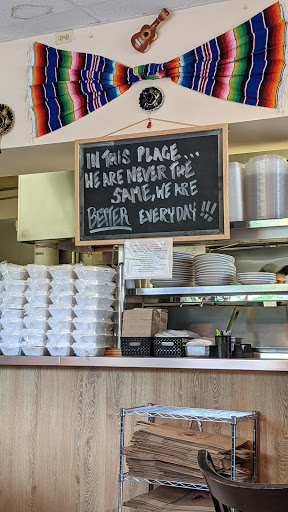 IN THIS PLACE....
WE ARE NEVER THE
SAME, WE ARE
BETTER EVERYDAY!!!